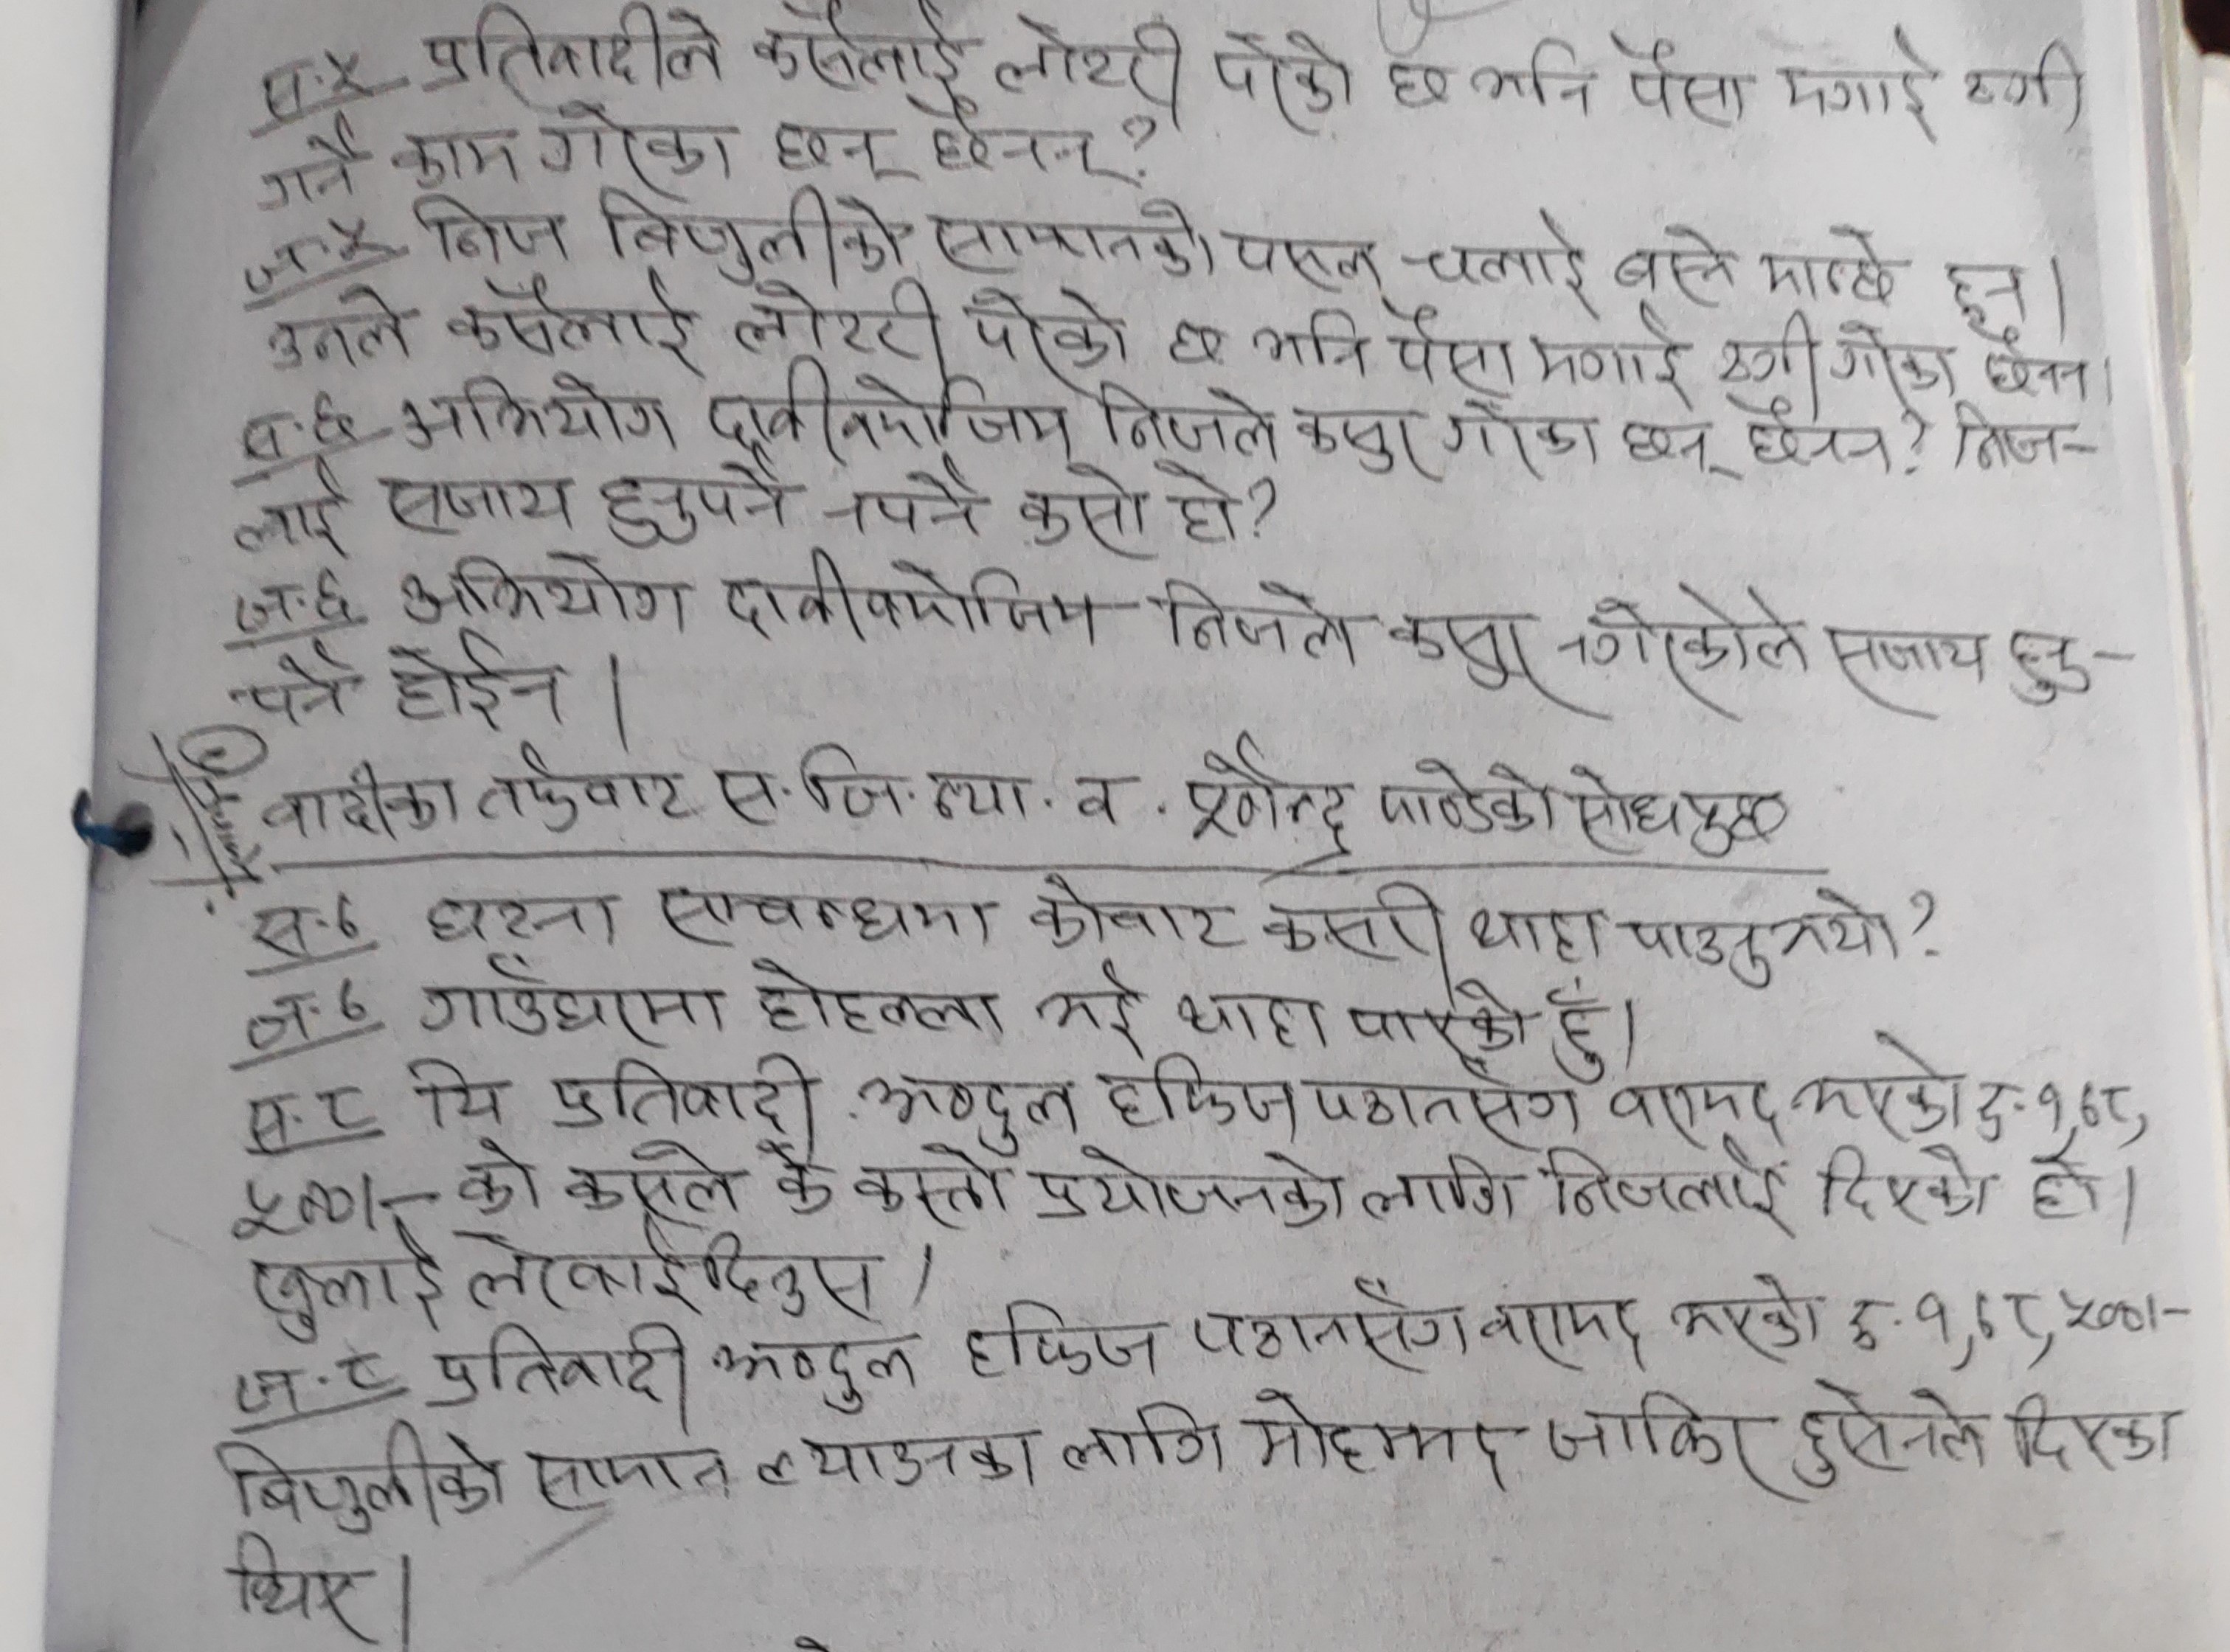 स.५ प्रतिवादीले कसैलाई लोटरी परेको छ भनि पैसा मगाई ठगी
गर्ने काम गरेका छन् छैनन्?
ज.५ निज बिजुलीको सामानको पसल चलाई बस्ने मान्छे हुन।
उनले कसैलाई लोटरी परेको छ भनि पैसा मगाई ठगी गरेका छैनन।
स.६ अभियोग दावीबमोजिम निजले कसुर गरेका छन् छैनन? निज-
लाई सजाय हुनुपर्ने नपर्ने कसो हो?
ज.६ अभियोग दावीबमोजिम निजले कसुर नगरेकोले सजाय हुनु-
पर्ने होईन।
वादीका तर्फबाट स.जि.न्या.व. पाण्डेको सोधपुछ
स.७ घटना सम्बन्धमा कोबाट कसरी थाहा पाउनुभयो?
ज.७ गाउँघरमा होहल्ला भई थाहा पाएको हुँ।
स.८ यि प्रतिवादी अब्दुल हफिज पठानसँग बरामद भएको रु.१,७८,
५००।- को कसले के कस्तो प्रयोजनको लागि निजलाई दिएको हो।
खुलाई लेखाईदिनुस।
ज.८ प्रतिवादी अब्दुल हफिज पठानसँग बरामद भएको रु.१,७८,५००।-
बिजुलीको सामान ल्याउनका लागि मोहम्मद जाकिर हुसेनले दिएका
थिए।